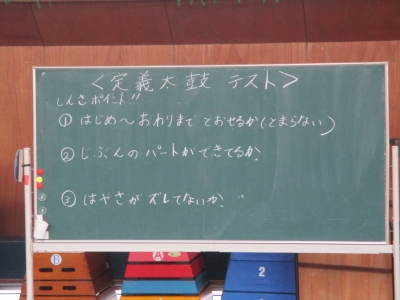 <定義太鼓 テスト>
しんさポイント!!
① はじめ〜おわりまで とおせるか(とまらない)
② じぶんの パートが できてるか。
③ はやさが ズレてないか。
B
A
2